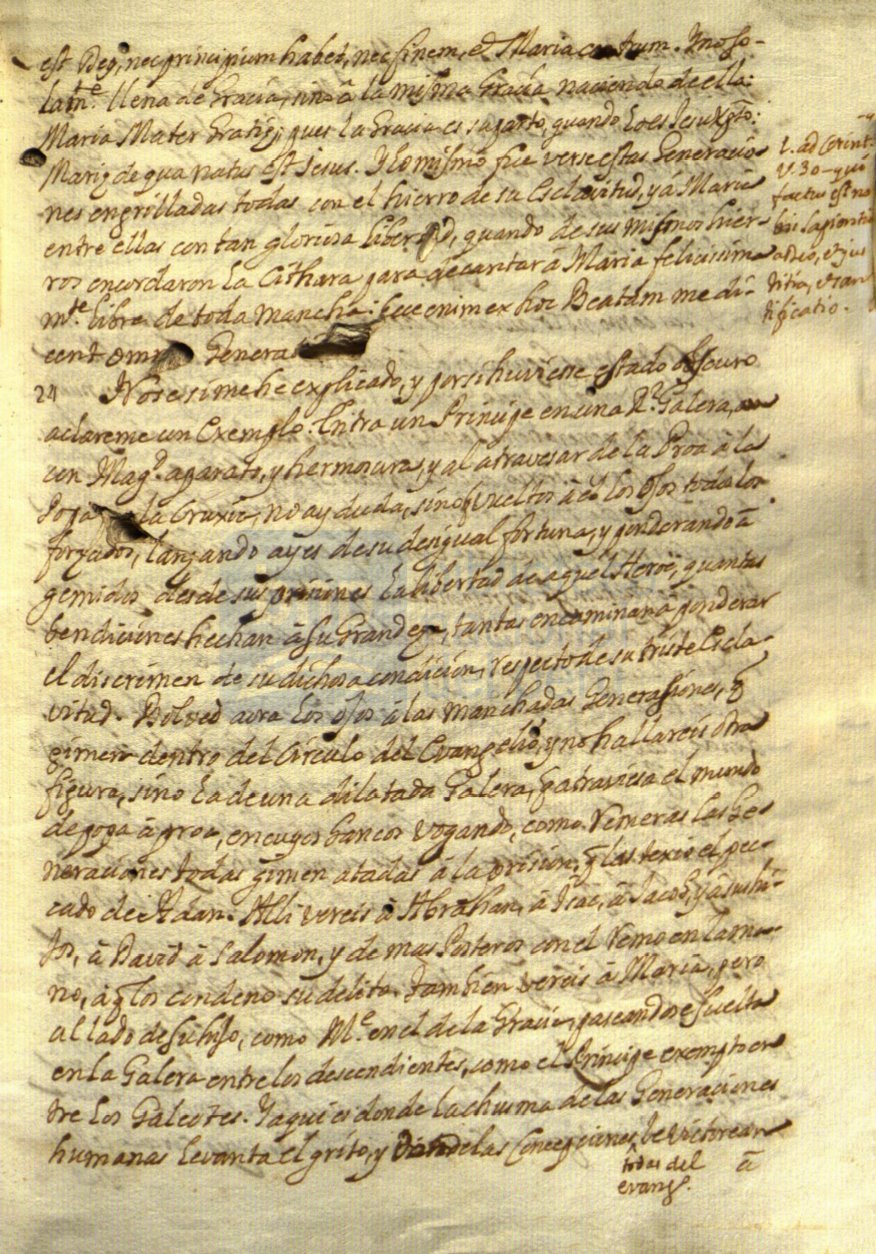 est Deq, nec principium habet, nec finem, et Maria centrum. Y no so-
lamte. llena de Gracia, sino â la misma Gracia naciendo de ella:
Maria Mater Gratię; pues la Gracia es su parto, quando lo es Jesu Xpto:
Marię de qua natus est Jesus. Y lo mismo fue verse estas Generacio
nes engrilladas todas con el hierro de su Esclavitud, y â Maria
entre ellas con tan gloriosa libertad, quando de sus mismos hier-
ros encordaron la Cithara para decantar a Maria felicissima
mte. libre de toda mancha: Ecce enim ex hoc Beatam me di-
cent omn Genera
24 No se si me he explicado, y por si huviesse estado obscuro
aclareme un Exemplo. Entra un Principe en una Rl. Galera,
con Magd. aparato, y hermosura, y al atravesar de la Proa â la
Popa la Cruxia, no ay duda, sino q vueltos â el los ojos todos los
forzados, lanzando ayes de su desigual fortuna, y ponderando â
gemidos desde sus prisiones la libertad de aquel Heroe, quantas
bendiciones hechan â su Grandeza, tantas encaminan â ponderar
el discrimen de su dichosa condicion, respecto de su triste Escla-
vitud. Bolved aora los ojos â las manchadas Generassiones, q
gimen dentro del Circulo del Evangelio, y no hallareis otra
figura, sino la de una dilatada Galera, q atraviesa el mundo
de popa â proa, en cuyos bancos vogando, como remeras las Ge
neraciones todas gimen atadas â la prision, q las texio el pec-
cado de Adan. Alli vereis â Abrahan, â Isac, â Jacob, y â sus hi-
jos, â David â Salomon, y de mas Posteros con el remo en la ma-
no, â q los condeno su delito. Tambien vereis â Maria, pero
al lado de su hijo, como Me. en el de la Gracia, paseandose suelta
en la Galera entre los descendientes, como el Principe exempto en
tre los Galeotes. Y aqui es donde la chusma de las Generaciones
humanas levanta el grito, y de las Concepciones, de victorear
todas del
evango.
â
1. ad Corint.
V. 30 - qui
factus est no
bis sapientia
a Deo, et jus
titia, et san
tificatio.